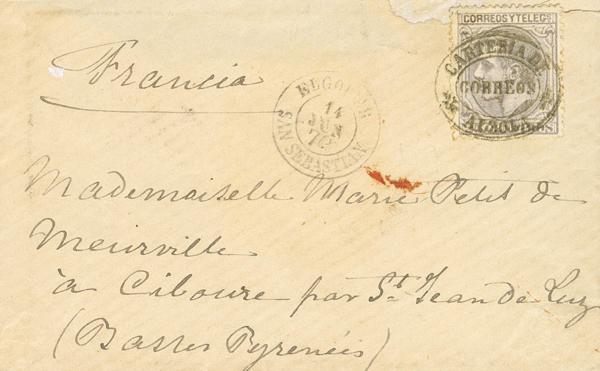 CORREOS Y TELEGS
CARTERIA DE
CORREOS
ALZOLA
Francia
ELGOIBAR
14
JUN
79
SAN SEBASTIAN
Mademoiselle Marie Petit de
Meurville
à Ciboure par St Jean de Luz
(Basses Pyrenées)